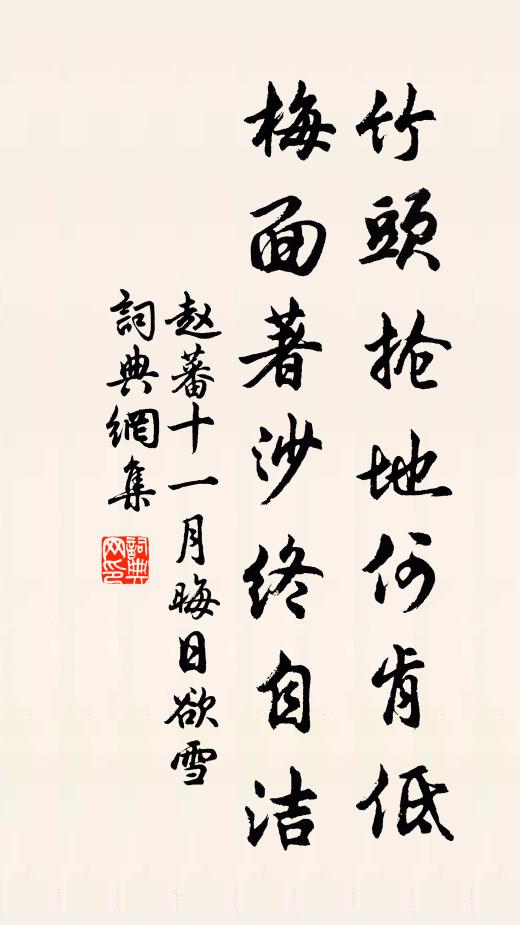 竹頭搶地何肯低
梅面著沙終自洁
赵蕃十一月晦日欲雪
詞典網集
詞典网印